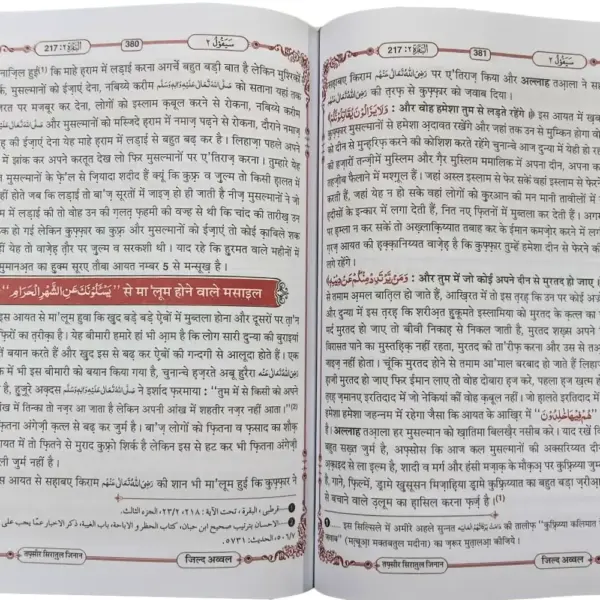 البقرة ٢ : 217
380
سَيَقُوْلُ ٢
नाज़िल हुई(1) कि माहे हराम में लड़ाई करना अगर्चे बहुत बड़ी बात है लेकिन मुशरिकों
मुसलमानों को ईज़ाएं देना, नबिय्ये करीम صَلَّى اللهُ تَعَالٰى عَلَيْهِ وَاٰلِهٖ وَسَلَّم को सताना यहां तक
पर मजबूर कर देना, लोगों को इस्लाम क़बूल करने से रोकना, नबिय्ये करीम
صَلَّى اللهُ تَعَالٰى عَلَيْهِ وَاٰلِهٖ وَسَلَّم और मुसलमानों को मस्जिदे हराम में नमाज़ पढ़ने से रोकना, दौराने नमाज़
की ईज़ाएं देना येह माहे हराम में लड़ाई से बहुत बढ़ कर है । लिहाज़ा पहले अपने
में झांक कर अपने करतूत देख लो फिर मुसलमानों पर ए'तिराज़ करना । तुम्हारे येह
मुसलमानों के फ़े'ल से ज़ियादा शदीद हैं क्यूं कि कुफ़्र व ज़ुल्म तो किसी हालत में
हीं होते जब कि लड़ाई तो बा'ज़ सूरतों में जाइज़ हो ही जाती है नीज़ मुसलमानों ने जो
में लड़ाई की तो वोह उन की ग़लत़ फ़हमी की वज्ह से थी कि चांद की तारीख़ उन
हो गई लेकिन कुफ़्फ़ार का कुफ़्र और मुसलमानों को ईज़ाएं तो कोई क़ाबिले शक
येह तो वाज़ेह़ त़ौर पर ज़ुल्म व सरकशी थी । याद रहे कि हुरमत वाले महीनों में
मुमानअ़त का हुक्म सूरए तौबा आयत नम्बर 5 से मन्सूख़ है ।
“يَسْـَٔلُوْنَكَ عَنِ الشَّهْرِ الْحَرَامِ” से मा'लूम होने वाले मसाइल
इस आयत से मा'लूम हुवा कि खुद बड़े बड़े ऐबों में मुब्तला होना और दूसरों पर त़ा'न
का त़रीक़ा है । येह बीमारी हमारे हां भी आ़म है कि लोग सारी दुन्या की बुराइयां
बयान करते हैं और खुद इस से बढ़ कर ऐबों की गन्दगी से आलूदा होते हैं । एक
में भी इस बीमारी को बयान किया गया है, चुनान्चे ह़ज़रते अबू हुरैरा رَضِىَ اللهُ تَعَالٰى عَنْهُ
है, हुज़ूरे अक़दस صَلَّى اللهُ تَعَالٰى عَلَيْهِ وَاٰلِهٖ وَسَلَّم ने इर्शाद फ़रमाया : “तुम में से किसी को अपने
में तिन्का तो नज़र आ जाता है लेकिन अपनी आंख में शहतीर नज़र नहीं आता ।”(2)
फ़ितना अंगेज़ी क़त्ल से बढ़ कर जुर्म है । बा'ज़ लोगों को फ़ितना व फ़साद का शौक़
आयत में तो फ़ितने से मुराद कुफ़्रो शिर्क है लेकिन इस से हट कर भी फ़ितना अंगेज़ी
जुर्म नहीं है ।
आयत से सह़ाबए किराम رَضِىَ اللهُ تَعَالٰى عَنْهُمْ की शान भी मा'लूम हुई कि कुफ़्फ़ार ने
1...قرطبى ، البقرة ، تحت الآية : ٢١٨ ، ٢٣/٢ ، الجزء الثالث.
2...الاحسان بترتيب صحيح ابن حبان، كتاب الحظر والاباحة، باب الغيبة، ذكر الاخبار عمّا يجب على
٥٠٦/٧، الحديث: ٥٧٣١.
तफ़्सीरे सिरातुल जिनान
जिल्द अव्वल
البقرة ٢ : 217
381
سَيَقُوْلُ ٢
सह़ाबए किराम رَضِىَ اللهُ تَعَالٰى عَنْهُمْ पर ए'तिराज़ किया और अल्लाह तआ़ला ने
رَضِىَ اللهُ تَعَالٰى عَنْهُمْ की त़रफ़ से कुफ़्फ़ार को जवाब दिया ।
وَلَا يَزَالُوْنَ يُقَاتِلُوْنَكُمْ : और वोह हमेशा तुम से लड़ते रहेंगे इस आयत में
कुफ़्फ़ार मुसलमानों से हमेशा अ़दावत रखेंगे और जहां तक उन से मुम्किन होगा
को दीन से मुन्ह़रिफ़ करने की कोशिश करते रहेंगे चुनान्चे आज दुन्या में येही हो
की हज़ारों तन्ज़ीमें मुस्लिम और ग़ैर मुस्लिम ममालिक में अपना दीन, अपना
तहज़ीब फैलाने में मश्ग़ूल हैं । जहां अस्ल इस्लाम से फेर सकें वहां इस्लाम से
करती हैं, जहां येह न हो सके वहां लोगों को क़ुरआन की मन मानी तावीलों में
ह़दीसों के इन्कार में लगा देती हैं, नित नए फ़ितनों में मुब्तला कर देती हैं । अगर
पर ह़म्ला न कर सकें तो अख़्लाक़िय्यात तबाह कर के ईमान कमज़ोर करने में
आयत की ह़क़्क़ानिय्यत वाज़ेह़ है कि कुफ़्फ़ार तुम्हें हमेशा दीन से फेरने की
लगे रहेंगे ।
وَمَنْ يَّرْتَدِدْ مِنْكُمْ عَنْ دِيْنِهٖ : और तुम में जो कोई अपने दीन से मुरतद हो जाए
से तमाम अ़मल बात़िल हो जाते हैं, आख़िरत में तो इस त़रह़ कि उन पर कोई
और दुन्या में इस त़रह़ कि शरीअ़त हुकूमते इस्लामिया को मुरतद के क़त्ल का
मर्द मुरतद हो जाए तो बीवी निकाह़ से निकल जाती है, मुरतद शख़्स अपने
विरासत पाने का मुस्तह़िक़ नहीं रहता, मुरतद की ता'रीफ़ करना और उस से
जाइज़ नहीं होता । चूंकि मुरतद होने से तमाम आ'माल बरबाद हो जाते हैं
मुरतद हो जाए फिर ईमान लाए तो वोह दोबारा ह़ज करे, पहला ह़ज ख़त्म
ज़मानए इरतिदाद में जो नेकियां कीं वोह क़बूल नहीं । जो ह़ालते इरतिदाद में
हमेशा हमेशा जहन्नम में रहेगा जैसा कि आयत के आख़िर में “هُمْ فِيْهَا خٰلِدُوْنَ”
है । अल्लाह तआ़ला हर मुसलमान को ख़ातिमा बिलख़ैर नसीब करे । याद रखें
बहुत सख़्त जुर्म है, अफ़्सोस कि आज कल मुसलमानों की अक्सरिय्यत
अ़क़ाइद से ला इ़ल्म है, शादी व मर्ग और हंसी मज़ाक़ के मौक़अ़ पर कुफ़्रिय्या
हैं, गाने, फ़िल्में, ड्रामे ख़ुसूसन मिज़ाह़िया ड्रामे कुफ़्रिय्यात का बहुत बड़ा ज़रीआ़
से बचाने वाले उ़लूम का ह़ासिल करना फ़र्ज़ है ।(1)
1 ... इस सिल्सिले में अमीरे अहले सुन्नत دَامَتْ بَرَكَاتُهُمُ الْعَالِيَه की तालीफ़ “कुफ़्रिय्या कलिमात
जवाब” (मत़्बूआ़ मक्तबतुल मदीना) का ज़रूर मुत़ालआ़ कीजिये ।
तफ़्सीरे सिरातुल जिनान
जिल्द अव्वल